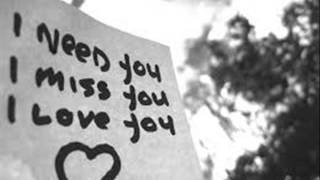 I NEED you
I miss you
I LOVE you